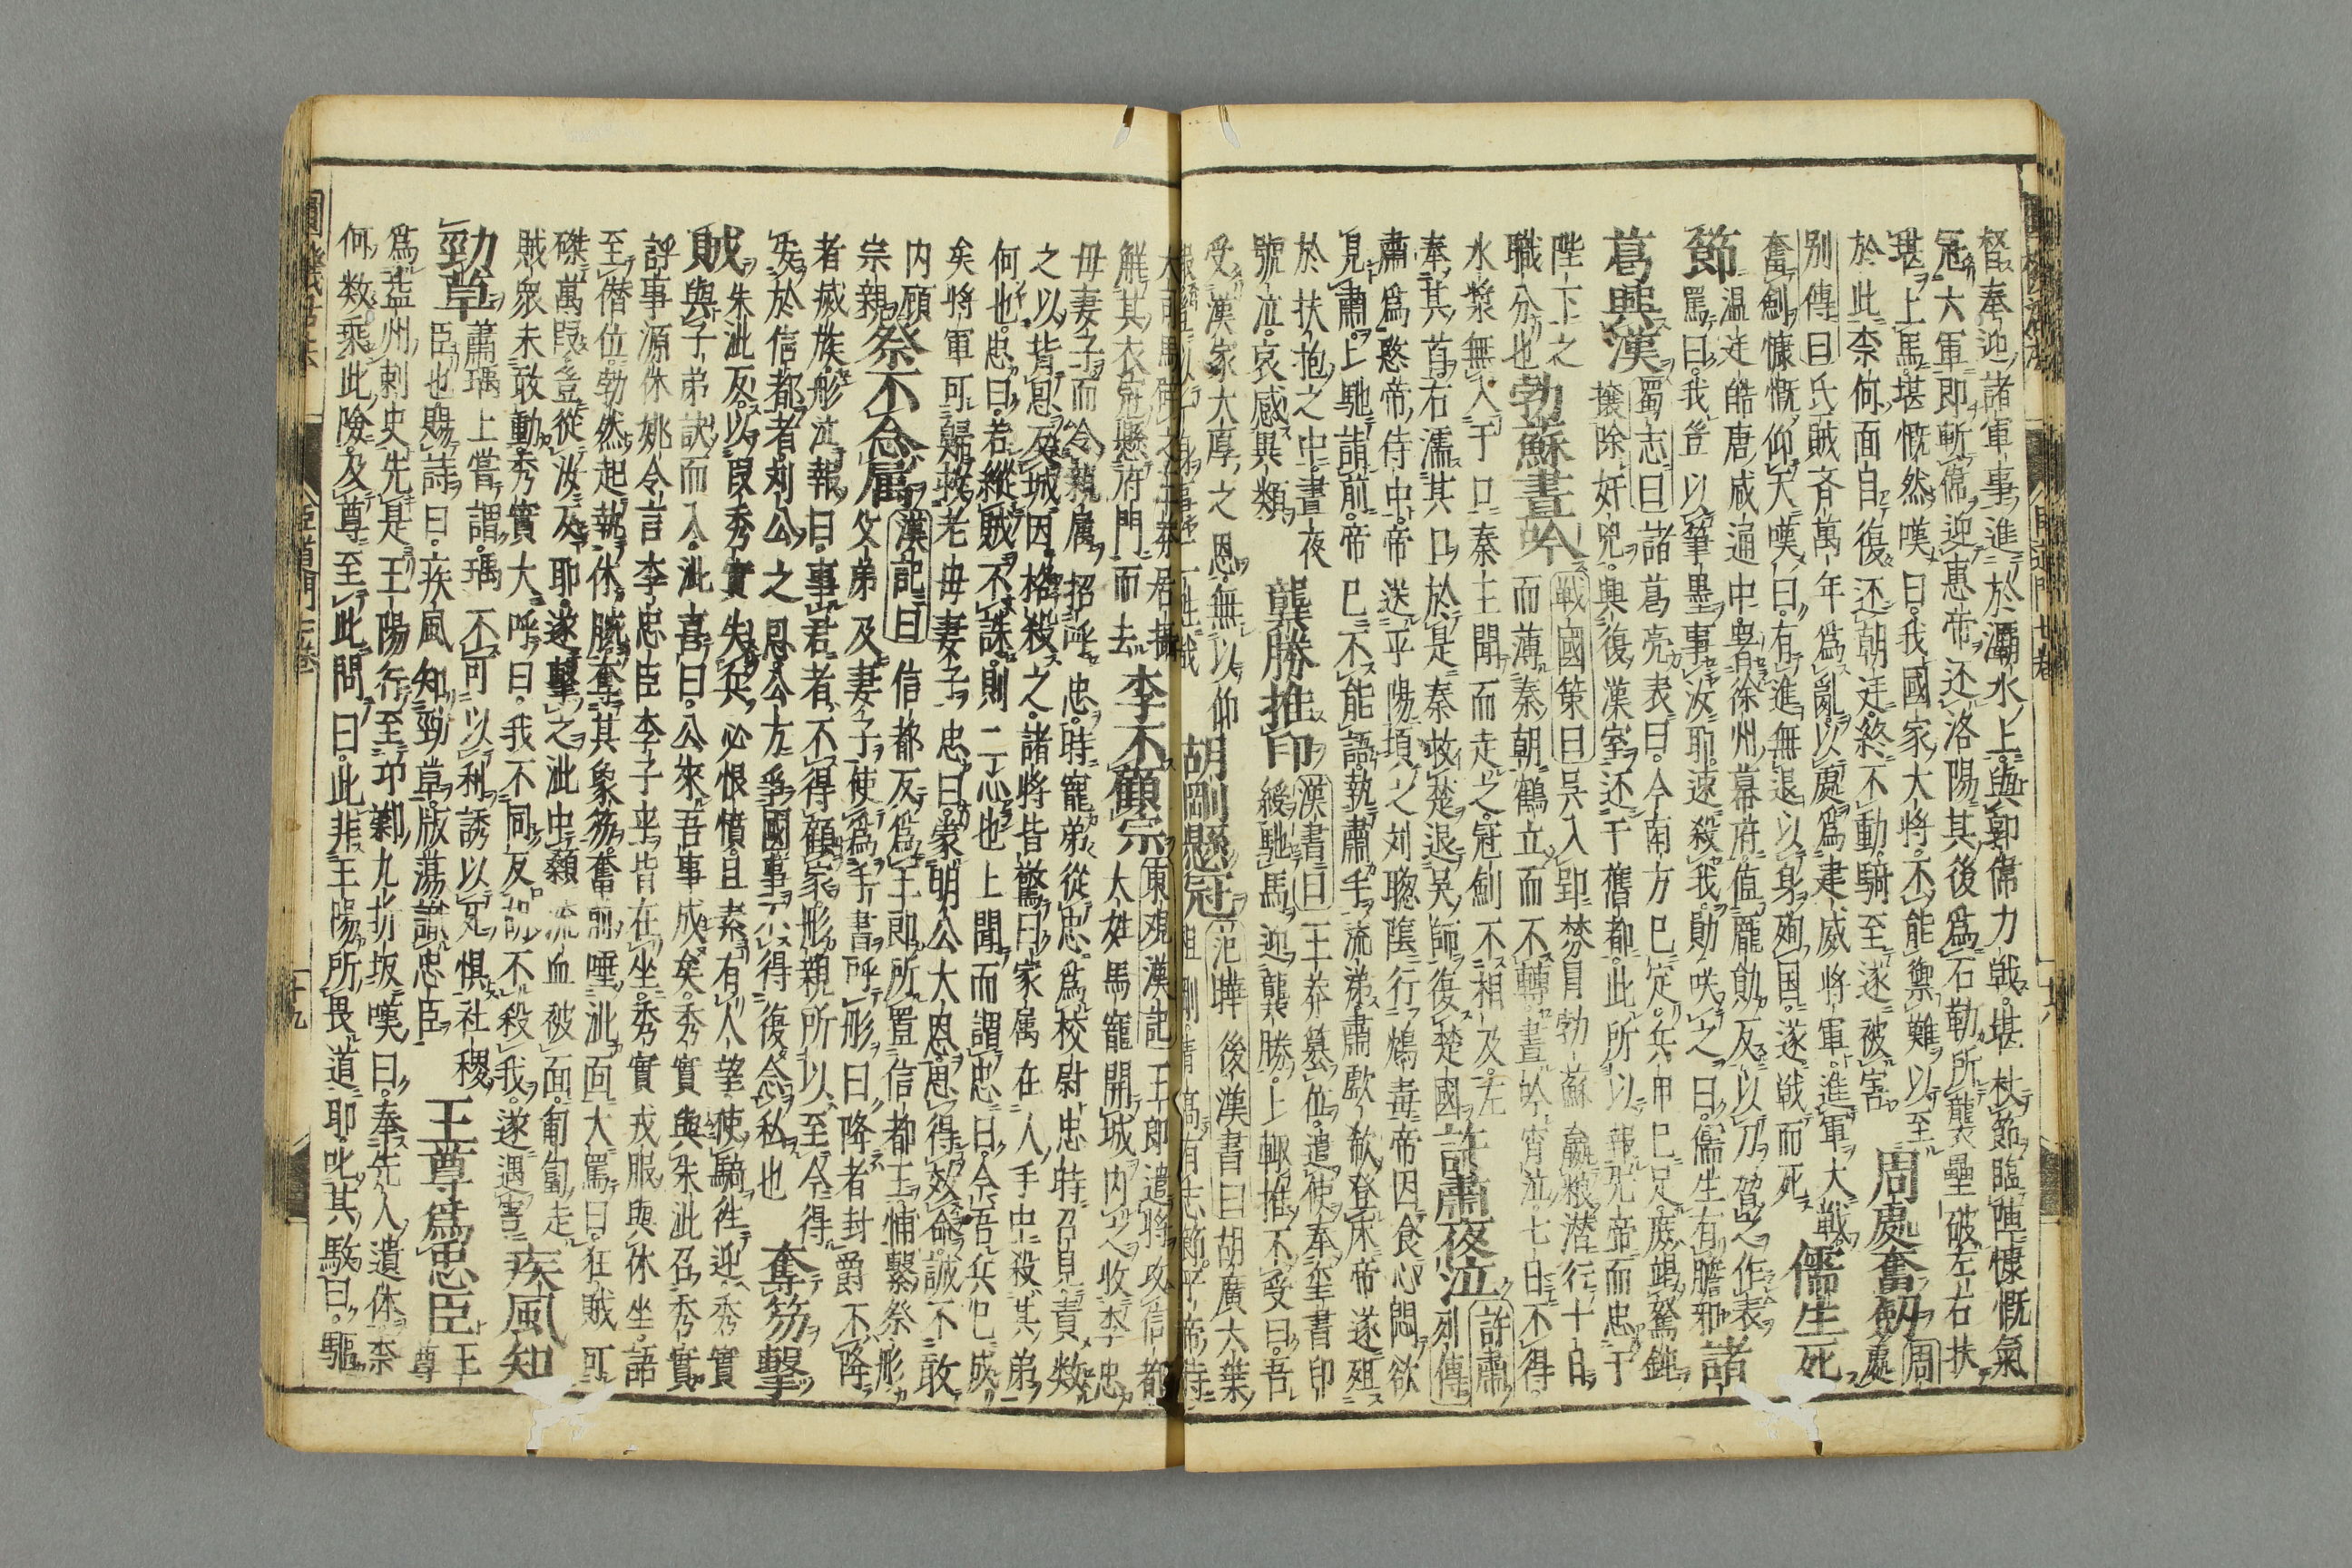 督奉迎諸軍事進於灞水上與郭偉力戦堪杖節臨陣慷慨氣
冠六軍即斬偉迎惠帝还洛陽其後爲石勒所襲壘破左右扶
堪上馬堪慨然嘆曰我國家大将不能禦難以至
於此柰何面自復还朝廷終不動騎至遂被害 周處奮劔 周處
別傳曰 氏賊斉萬年爲亂以處爲建威将軍進軍大戦
奮劔慷慨仰天嘆曰有進無退以身殉国遂戦而死 儒生死
節 温廷皓唐咸通中署徐州幕府値龐勛反以刀脅之作表
罵曰我豈以筆墨事汝耶速殺我勛咲之曰儒生有膽邪 諸
葛興漢 蜀志曰 諸葛亮表曰今南方已定兵甲已足庶竭駑鈍
攘除奸兇興復漢室还于舊都此所以報先帝而忠于
陛下之
職分也 勃蘇晝吟 戦國策曰 呉入郢棼冒勃蘇贏粮潜行十日
而薄秦朝鶴立而不轉晝吟宵泣七日不得
水漿無入于口秦王聞而走之冠劔不相及左
奉其首右濡其口於是秦救楚退呉師復楚國 許肅夜泣 許肅
列傳
肅爲愍帝侍中帝送平陽項之刘聰隂行鴆毒帝因食心悶欲
見肅上馳詣前帝已不能語執肅手流涕肅歔欷登床帝遂殂
於扶抱之中晝夜
號泣哀感異類 龔勝推印 漢書曰 王莽簒位遣使奉璽書印
綬馳馬迎龔勝上輙推不受曰吾
受漢家大厚之恩無以仰 胡剛懸冠 范曄後漢書曰 胡廣六葉
祖剛清髙有志節平帝時
大司馬
解其衣冠懸府門而去 李不顧宗 東観漢記 王郎遣将攻信都
大姓馬寵開城内之收李忠
母妻子而令親属招呼忠時寵弟從忠爲校尉忠時召見責数
之以背恩反城因格殺之諸将皆驚曰家属在人手中殺其弟
何也忠曰若縱賊不誅則二心也上聞而謂忠曰今吾兵已成
矣将軍可歸救老母妻子忠曰蒙明公大恩思得效命誠不敢
内顧
宗親 祭不念属 漢記曰 信都反爲王郎所置信都王悑繫祭彤
父弟及妻子使爲手書呼彤曰降者封爵不降
者滅族彤泣報曰事君者不得顧家彤親所以至今得
安於信都者刘公之恩公方爭國事不得復念私也 奪笏擊
賊 朱泚反以叚秀實失兵必恨憤且素有人望使騎徃迎秀實
與子弟訣而入泚喜曰公來吾事成矣秀實與朱泚召秀實
誶事源休姚令言李忠臣李子平皆在坐秀實戎服與休坐語
至僭位勃然起執休腕奪其象笏奮前唾泚面大罵曰狂賊可
磔萬叚豈從汝反耶遂擊之泚中顙流血被面匍匐走
賊衆未敢動秀實大呼曰我不同反胡不殺我遂遇害 疾風知
勁草 蕭瑀上嘗謂瑀不可以利誘以死懼社稷
臣也賜詩曰疾風知勁草版蕩識忠臣 王尊爲忠臣 王尊
爲益州刺史先是王陽行至卭郲九折坂嘆曰奉先人遺体柰
何数乘此險及尊至此問曰此非王陽所畏道耶叱其馭曰驅